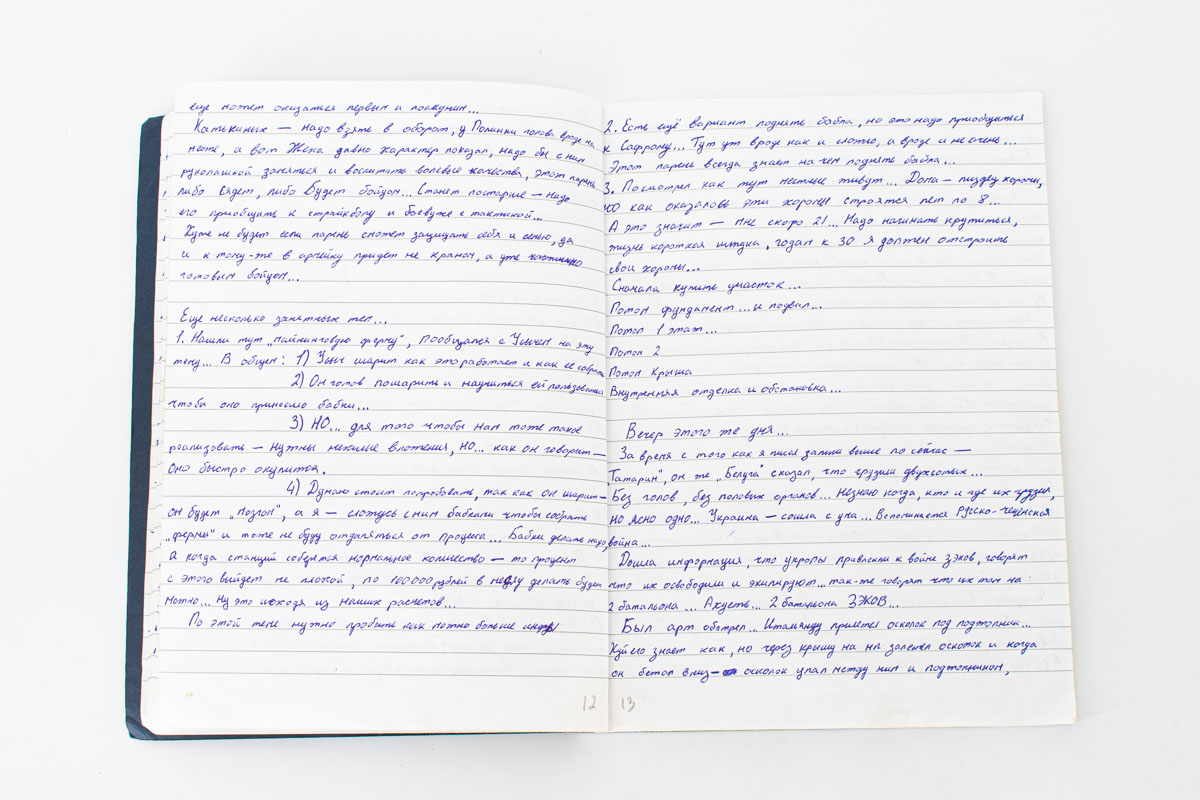 еще может оказаться первым и последним...
Катькиных — надо взять в оборот, у Полинки голова вроде на
месте, а вот Жека давно характер показал, надо бы с ним
рукопашкой заняться и воспитать волевые качества, этот парень
либо сядет, либо будет бойцом... Станет постарше — надо
его приобщить к страйкболу и боевухе с тактикой...
Хуже не будет если парень сможет защищать себя и семью, да
и к тому-же в армейку придет не краном, а уже частично
готовым бойцом...
Еще несколько занятных тем...
1. Нашли тут „майнинговую ферму", пообщался с Уычем на эту
тему... В общем: 1) Уыч шарит как это работает и как ее собрать
2) Он готов пошарить и научиться ей пользоваться
чтобы оно приносило бабки...
3) НО... для того чтобы нам тоже такое
реализовать — нужны нехилые вложения, но... как он говорит —
оно быстро окупится.
4) Думаю стоит попробовать, так как он шарит —
он будет „мозгом", а я — сложусь с ним бабками чтобы собрать
„фермы" и тоже не буду отдаляться от процесса... Бабки делать надо,
а когда станций соберется нормальное количество — то процент
с этого выйдет не плохой, по 100 000 рублей в неделю делать будет
можно... Ну это исходя из наших расчетов...
По этой теме нужно пробить как можно больше инфы
12
2. Есть ещё вариант поднять бабла, но это надо приобщиться
к Сафрону... Тут уж вроде как и сложно, а вроде и не очень...
Этот парень всегда знает на чем поднять бабла...
3. Посмотрел как тут местные живут... Дома — пиздец хоромы,
но как оказалось эти хоромы строятся лет по 8...
А это значит — мне скоро 21... Надо начинать крутиться,
жизнь короткая штука, годам к 30 я должен отстроить
свои хоромы...
Сначала купить участок...
Потом фундамент... и подвал...
Потом 1 этаж...
Потом 2
Потом крыша
Внутренняя отделка и обстановка...
Вечер этого же дня...
За время с того как я писал запись выше по сейчас —
„Татарин", он же „Белуга" сказал, что грузили двухсотых...
Без голов, без половых органов... Незнаю когда, кто и где их грузил,
но ясно одно... Украина — сошла с ума... Вспоминается Русско-чеченская
война...
Дошла информация, что укропы привлекли к войне зэков, говорят
что их освободили и экипируют... так-же говорят что их там на
2 батальона... Ахуеть... 2 батальона ЗЭКОВ...
Был арт обстрел... Итальянцу прилетел осколок под подтопник...
Хуй его знает как, но через крышу на нп залетел осколок и когда
он бежал вниз — осколок упал между ним и подтопником,
13